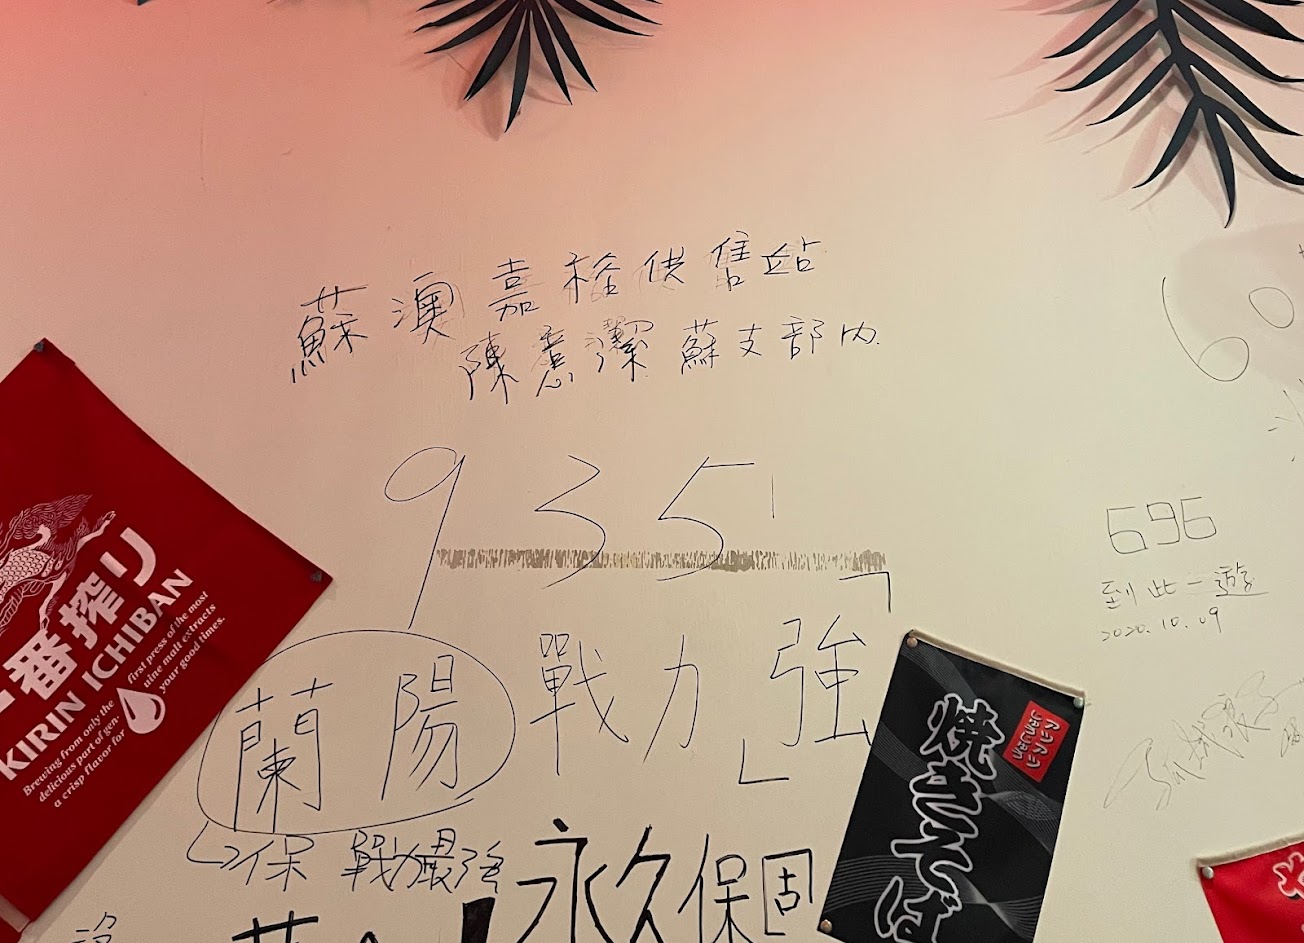 蘇澳嘉裕供售站
陳意潔 蘇支部內
935
「戰力強」
蘭陽
保 戰力最強
永久保固
60
696
到此一遊
2020.10.09
一番搾り
KIRIN ICHIBAN
first press of the most
Brewing from only the
delicious part of gen-
uine malt extracts
a crisp flavor for
your good times.
焼きそば